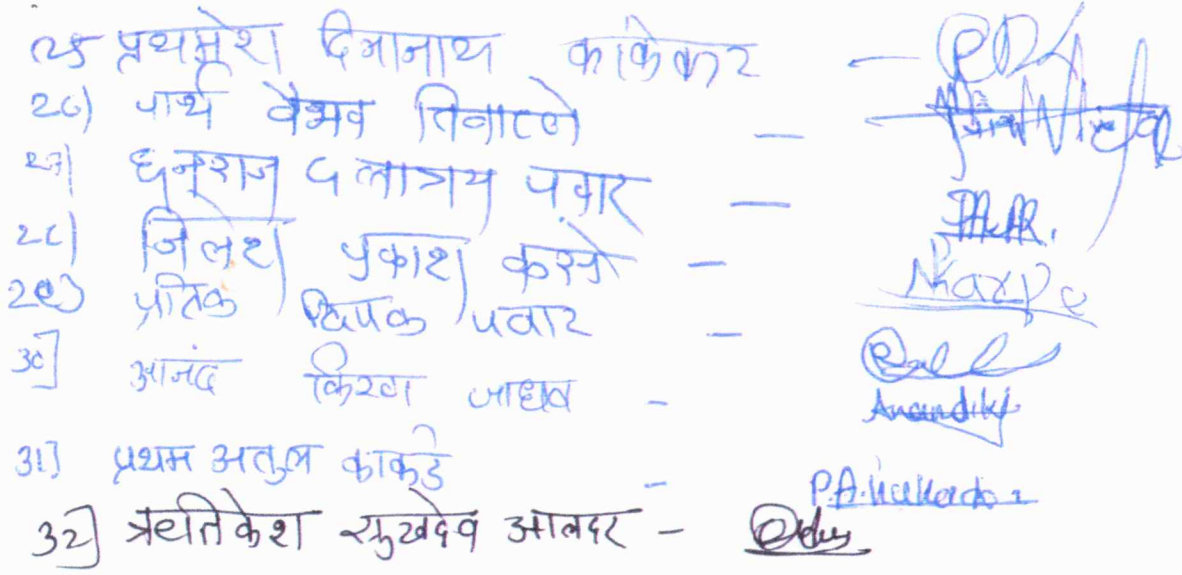 २५ प्रथमेश दिनानाथ काकेकर -
२६) पार्थ वैभव निवाटणे -
२७) धनुराज दत्तात्रय पवार -
२८) निलेश प्रकाश करपे - NKarpe
२९) प्रतिक दिपक पवार -
३०] आनंद किरण जाधव - Anandikj
३१] प्रथम अतुल काकडे - P.A.Kakade
३२] ऋतिकेश सुखदेव आलदर -